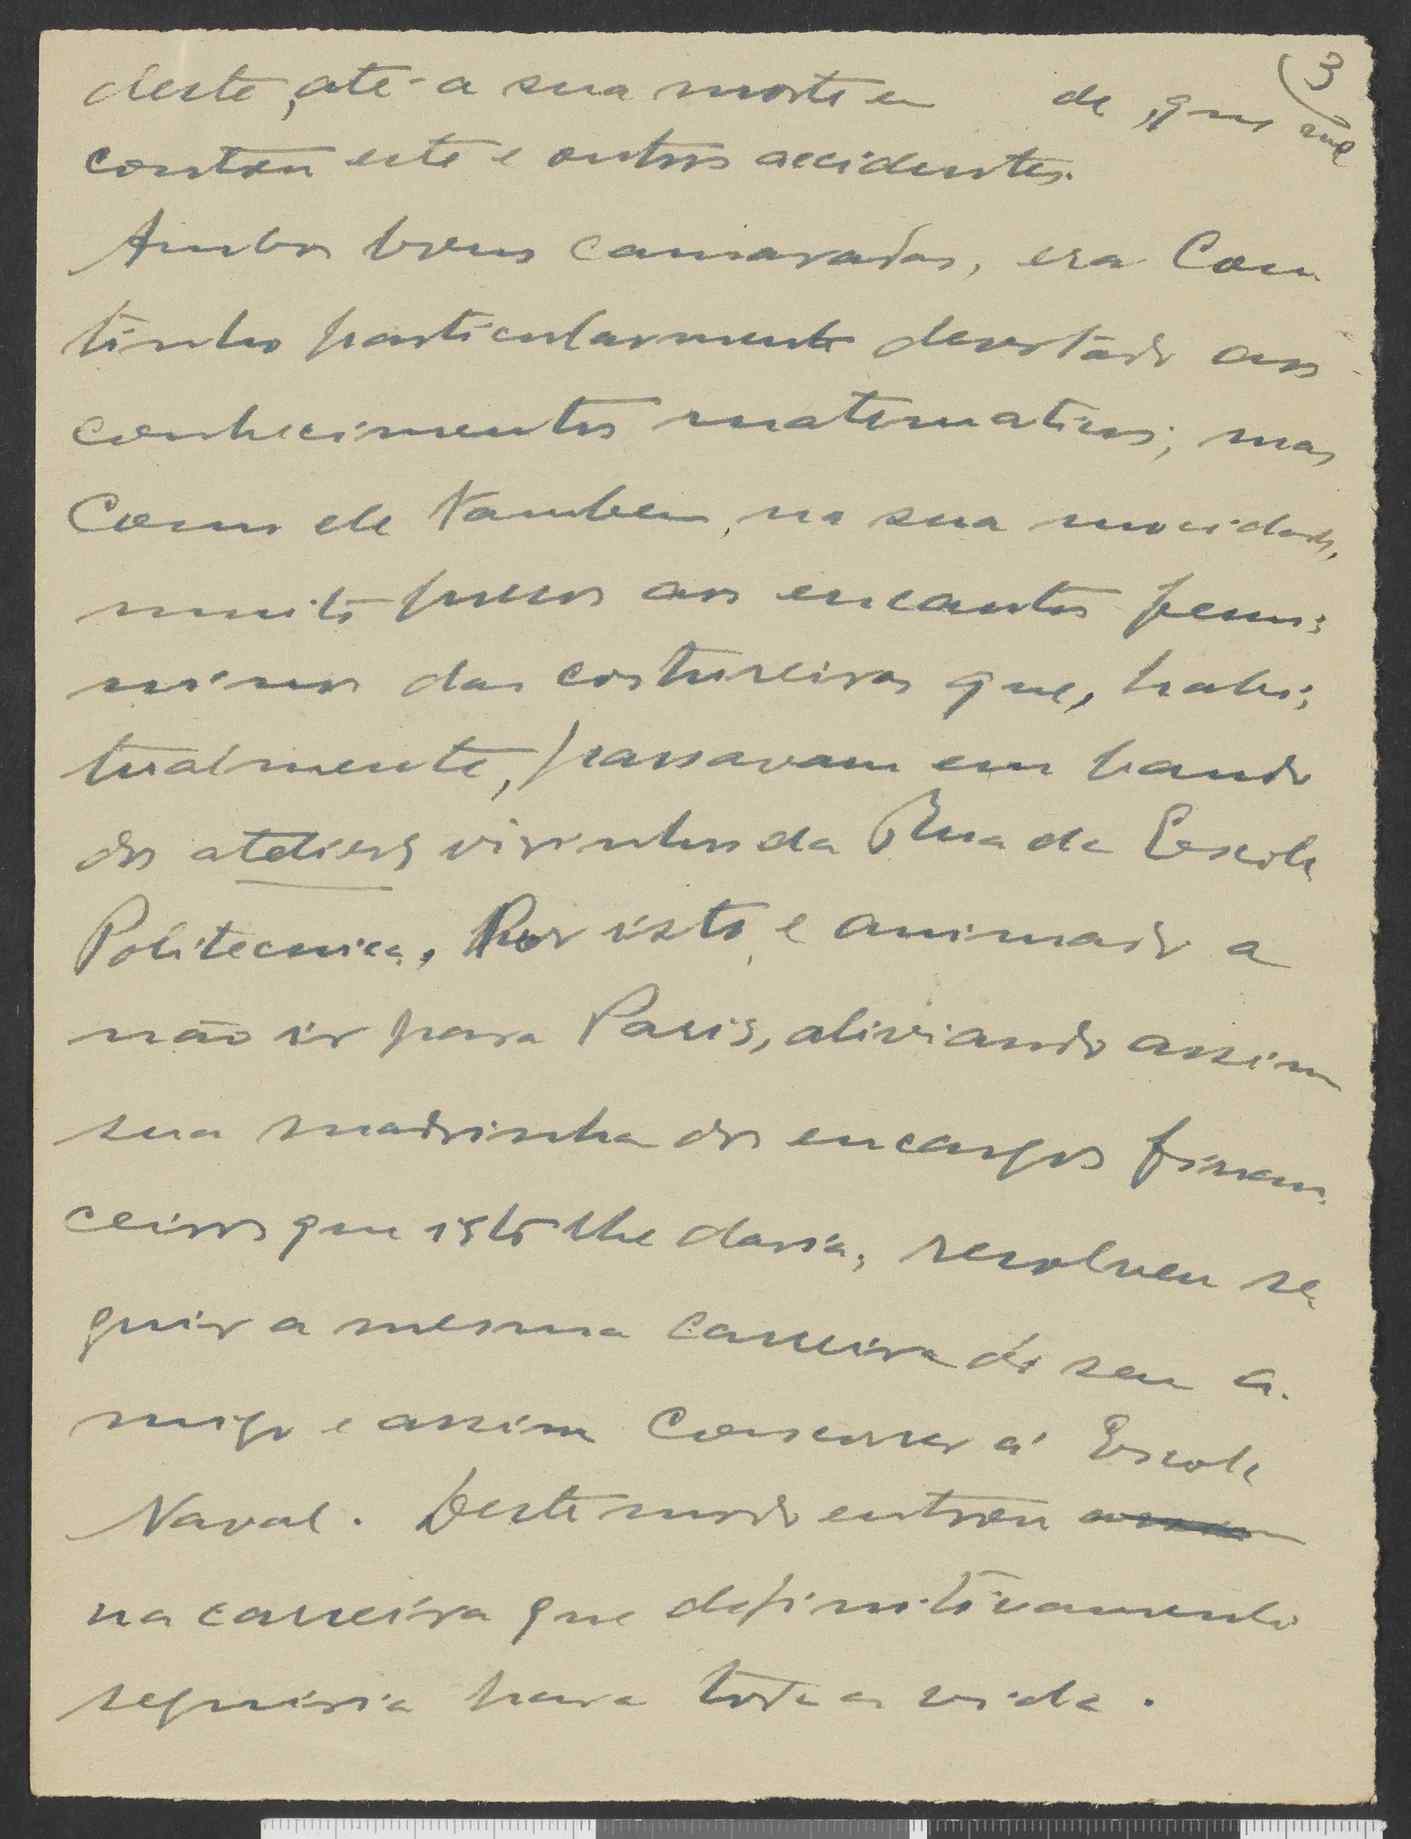 3
deste, até a sua morte em de, que me
contou este e outros accidentes.
Ambos bons camaradas, era Cou
tinho particularmente devotado aos
conhecimentos matematicos; mas
como ele tambem, na sua mocidade,
muito preso aos encantos femi-
ninos das costureiras que, habi-
tualmente, passavam em bando
dos ateliers visinhos da Rua da Escola
Politecnica. Por isto, e animado a
não ir para Paris, aliviando assim
sua madrinha dos encargos finan-
ceiros que isto lhe daria, resolveu se-
guir a mesma carreira do seu a-
migo e assim concorrer á Escola
Naval. Deste modo entrou
na carreira que definitivamente
seguiria para toda a vida.